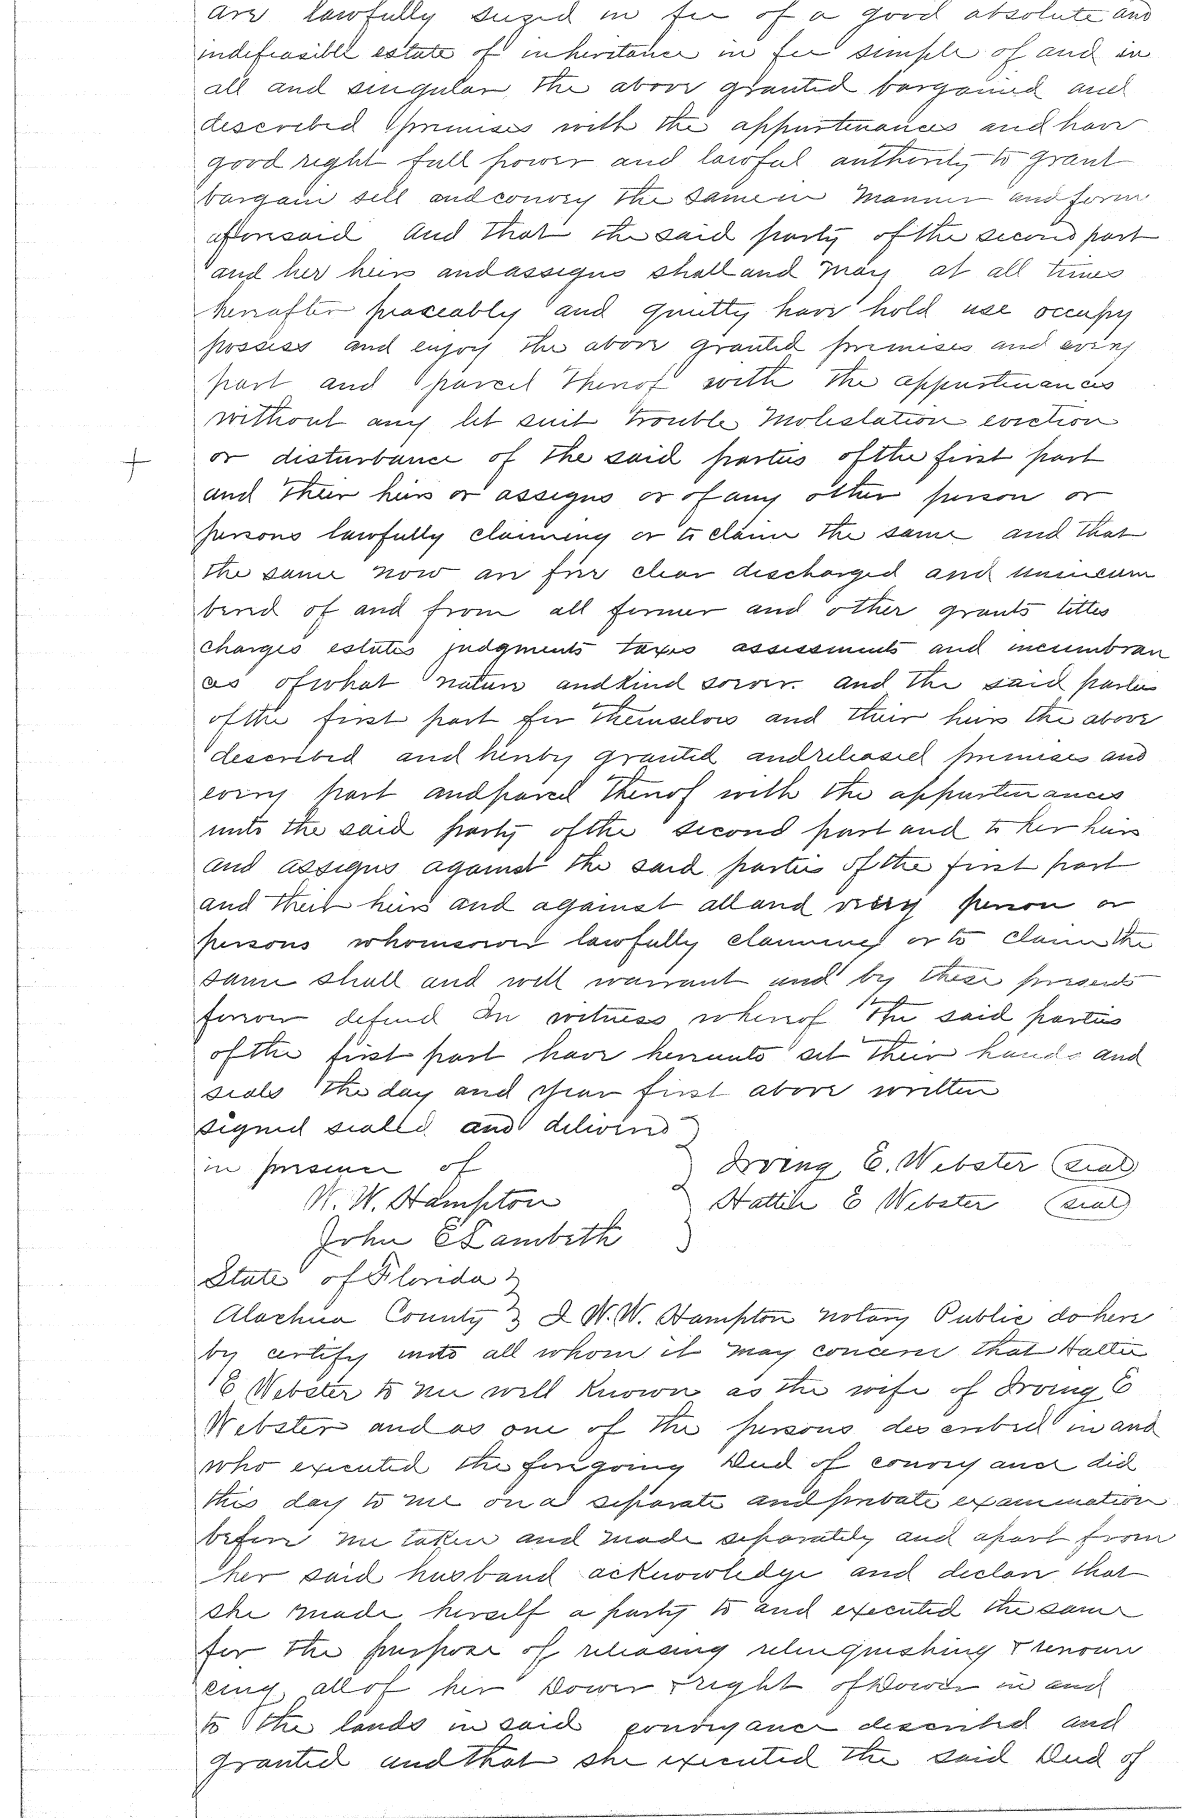 are lawfully siezed in fee of a good absolute and
indefeasible estate of inheritance in fee simple of and in
all and singular the above granted bargained and
described premises with the appurtenances and have
good right full power and lawful authority to grant
bargain sell and convey the same in manner and form
aforesaid and that the said party of the second part
and her heirs and assigns shall and may at all times
hereafter peaceably and quietly have hold use occupy
possess and enjoy the above granted premises and every
part and parcel thereof with the appurtenances
without any let suit trouble molestation eviction
+ or disturbance of the said parties of the first part
and their heirs or assigns or of any other person or
persons lawfully claiming or to claim the same and that
the same now are free clear discharged and unincum
bered of and from all former and other grants titles
charges estates judgments taxes assessments and incumbran
ces of what nature and kind soever. and the said parties
of the first part for themselves and their heirs the above
described and hereby granted and released premises and
every part and parcel thereof with the appurtenances
unto the said party of the second part and to her heirs
and assigns against the said parties of the first part
and their heirs and against all and every person or
persons whomsoever lawfully claiming or to claim the
same shall and will warrant and by these presents
forever defend In witness whereof the said parties
of the first part have hereunto set their hands and
seals the day and year first above written
signed sealed and delivered }
in presence of } Irving E. Webster (seal)
W. W. Hampton } Hattie E Webster (seal)
John E Lambeth }
State of Florida }
Alachua County } I W. W. Hampton notary Public do here
by certify unto all whom it may concern that Hattie
E Webster to me well known as the wife of Irving E
Webster and as one of the persons described in and
who executed the foregoing Deed of conveyance did
this day to me on a separate and private examination
before me taken and made separately and apart from
her said husband acknowledge and declare that
she made herself a party to and executed the same
for the purpose of releasing relinquishing & renoun
cing all of her Dower & right of Dower in and
to the lands in said conveyance described and
granted and that she executed the said Deed of